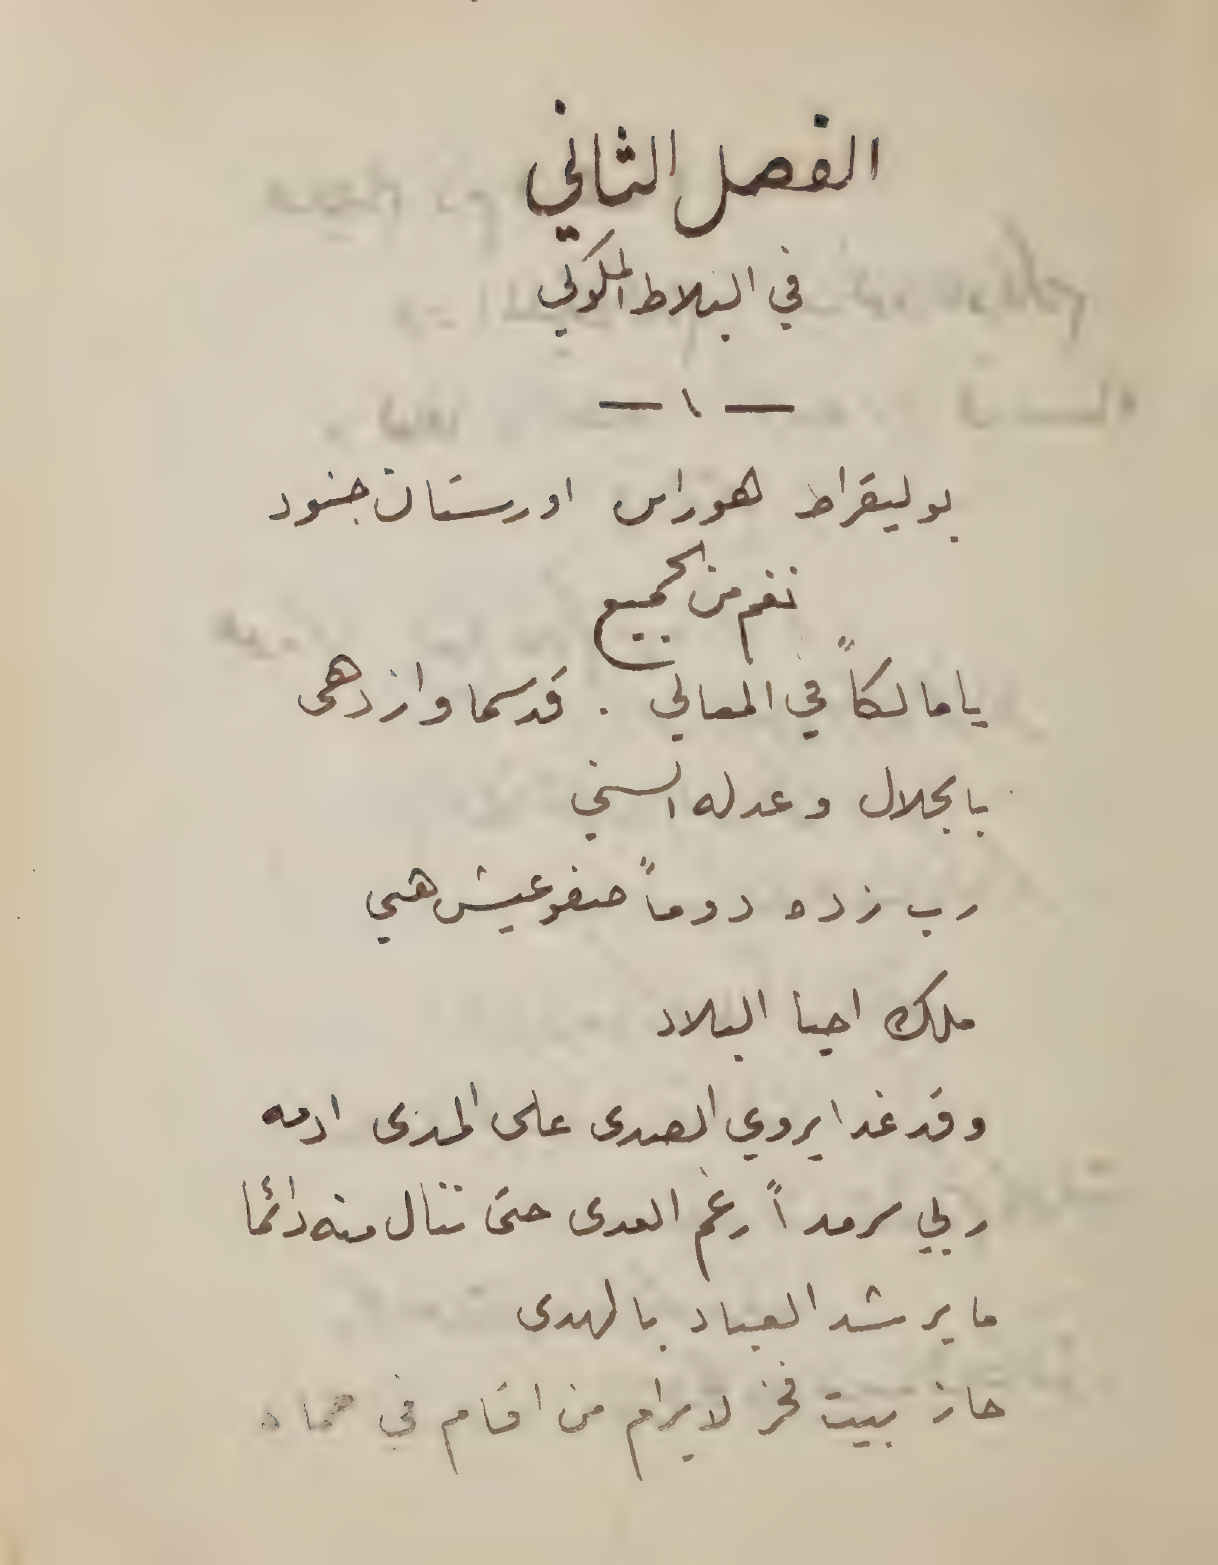 الفصل الثاني
في البلاط الملكوكي
— ١ —
بوليقراط هوراس اورستان جنود
نغم من الجميع
يا مالكاً في المعالي . قد سما وازدهى
بالجلال وعدله السني
رب زده دوماً صفو عيش هني
ملك احيا البلاد
وقد غدا يروي الصدى على المدى ادمه
ربي سرمداً رغم العدى حتى تنال منه دائما
ما يرشد العباد بالهدى
حاز بيت فخر لا يرام من اقام في حماه